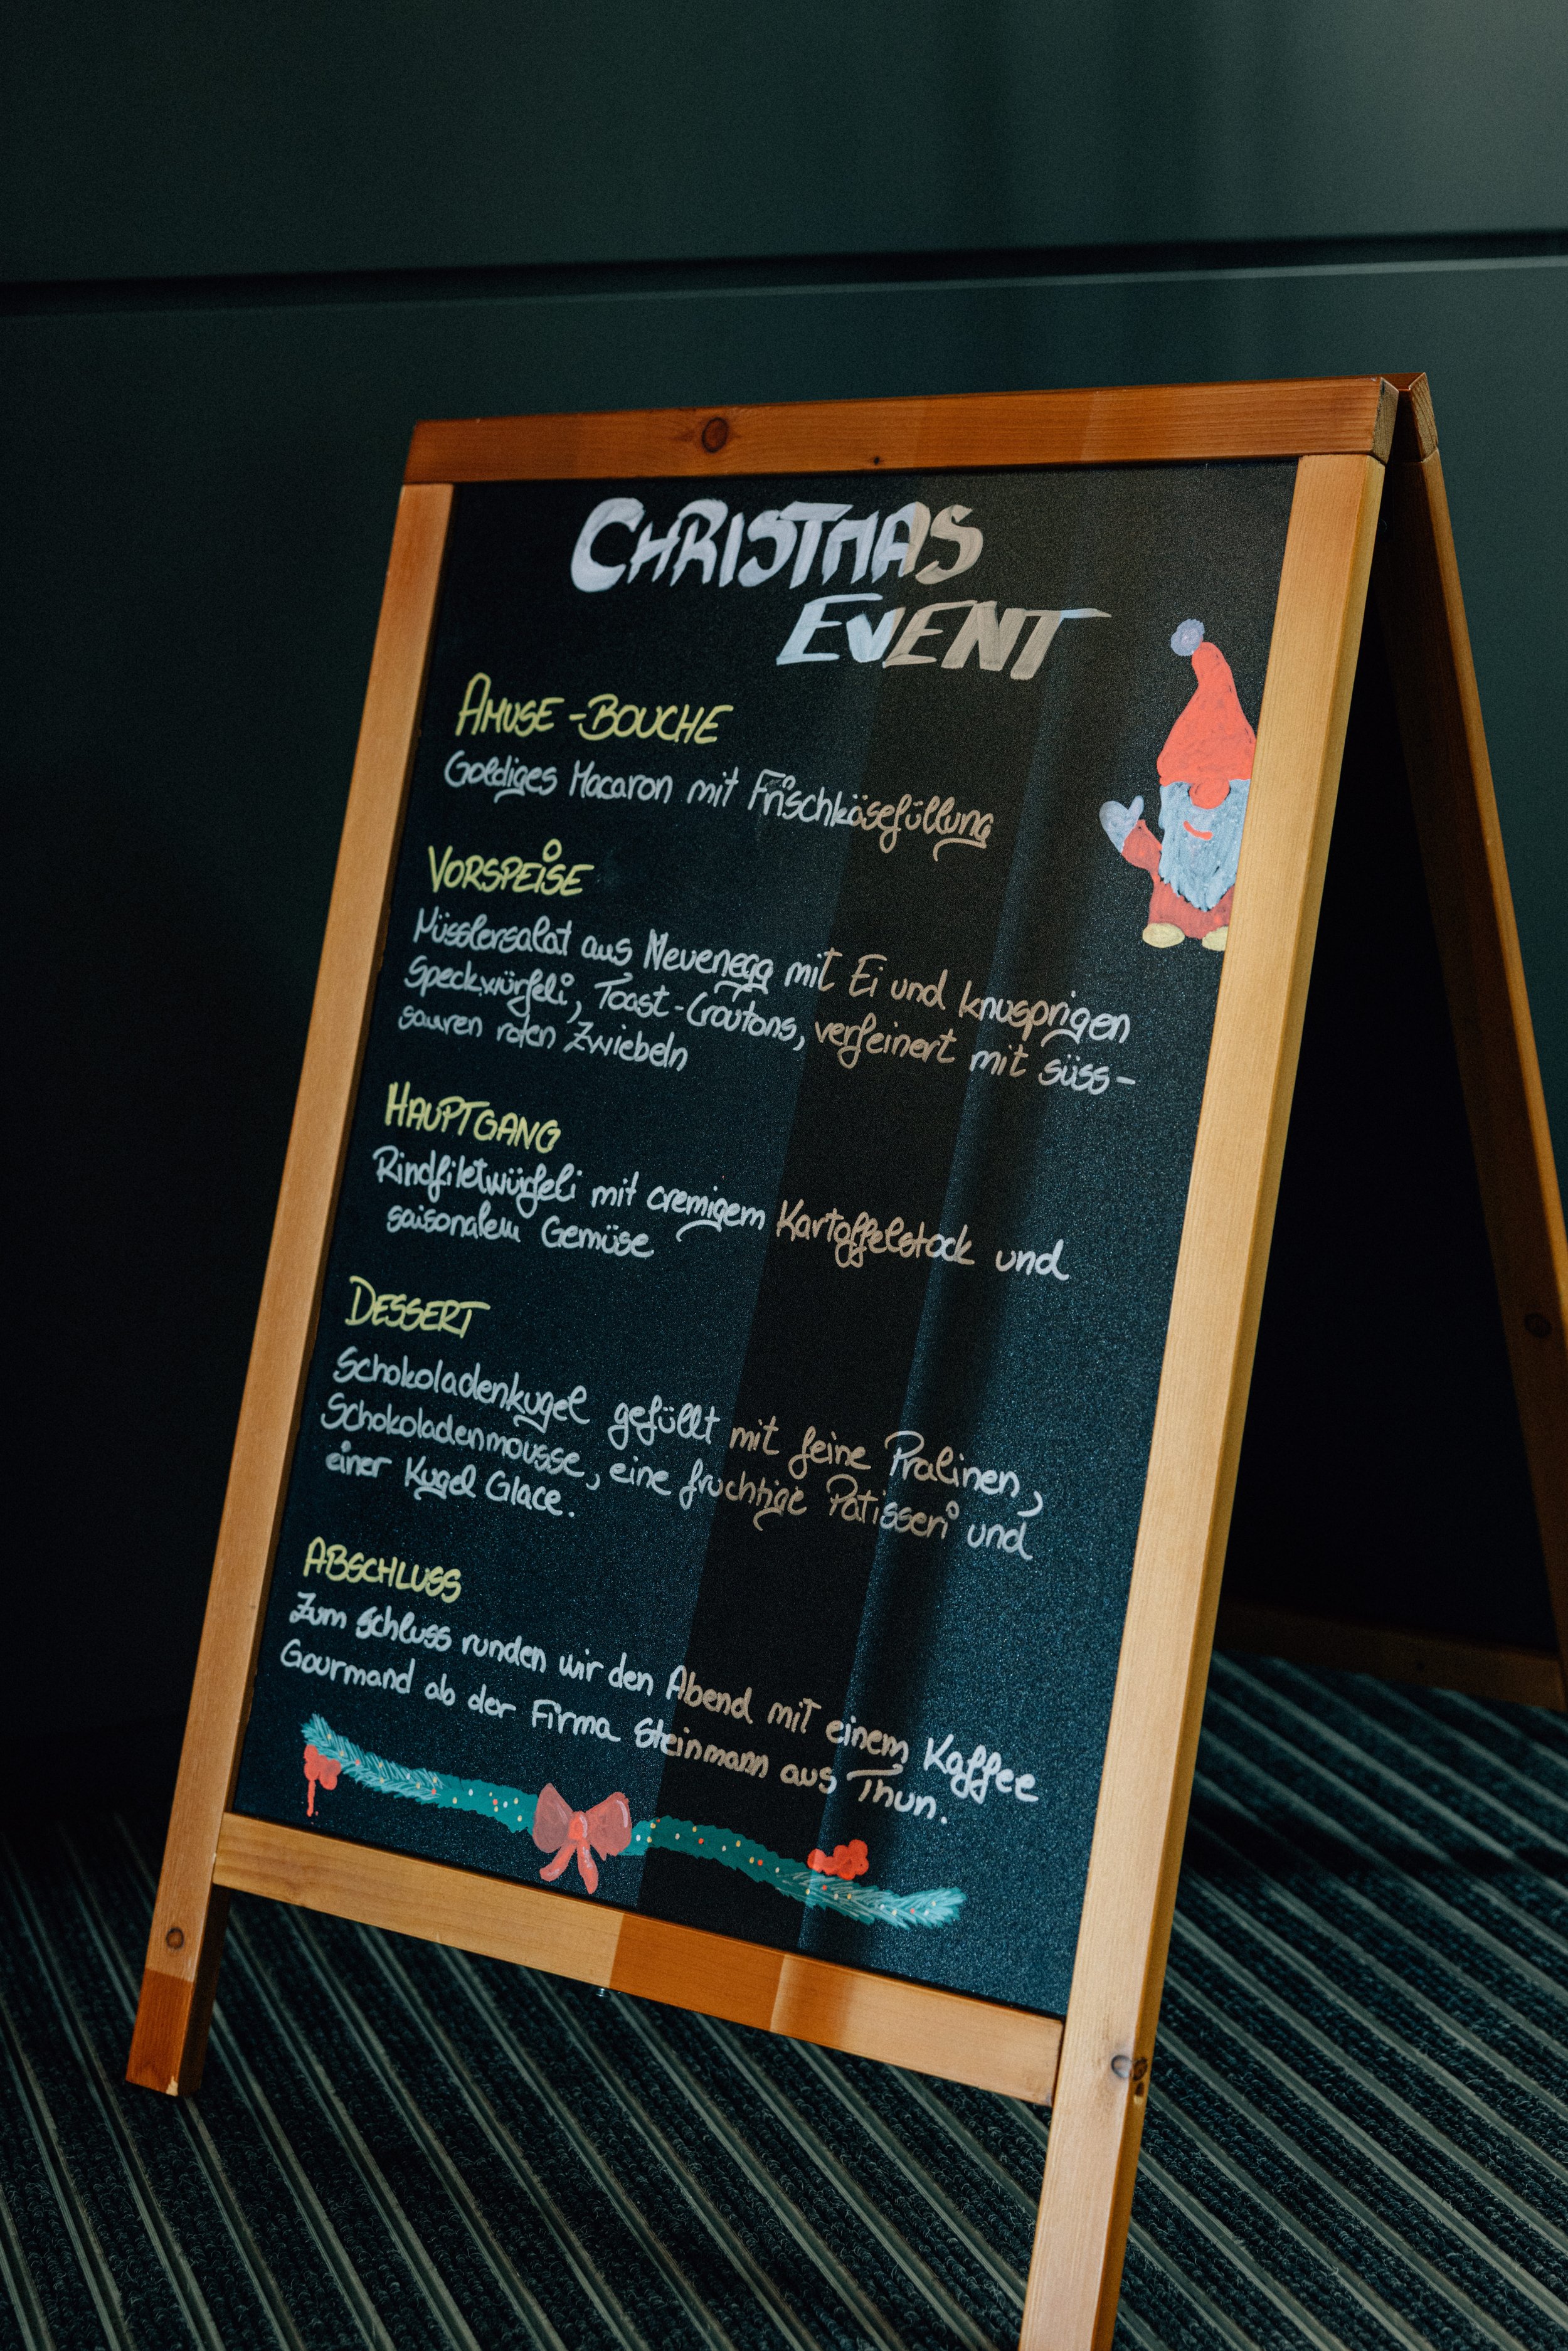 CHRISTMAS
EVENT
AMUSE-BOUCHE
Goldiges Macaron mit Frischkäsefüllung
VORSPEISE
Nüsslersalat aus Neuenegg mit Ei und knusprigen
Speckwürfeli, Toast-Croutons, verfeinert mit süss-
sauren roten Zwiebeln
HAUPTGANG
Rindfiletwürfeli mit cremigem Kartoffelstock und
saisonalem Gemüse
DESSERT
Schokoladenkugel gefüllt mit feine Pralinen,
Schokoladenmousse, eine fruchtige Patisseri und
einer Kugel Glace.
ABSCHLUSS
Zum schluss runden wir den Abend mit einem Kaffee
Gourmand ab der Firma Steinmann aus Thun.